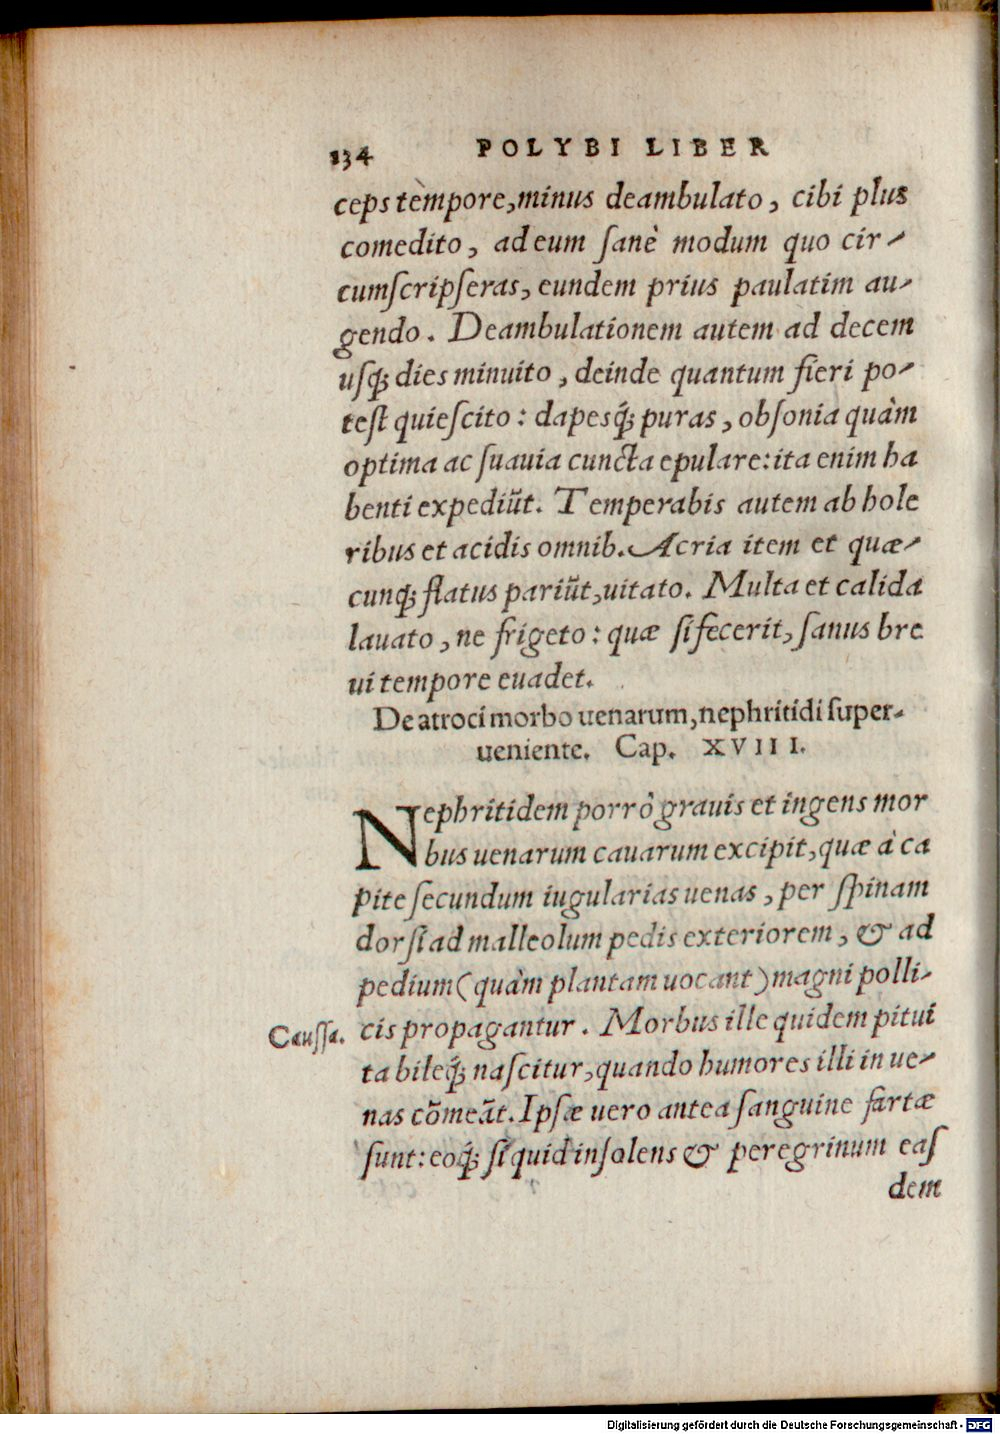 134 POLYBI LIBER
ceps tempore, minus deambulato, cibi plus
comedito, ad eum ſanè modum quo cir-
cumſcripſeras, eundem prius paulatim au-
gendo. Deambulationem autem ad decem
uſq; dies minuito, deinde quantum fieri po-
teſt quieſcito: dapesq́; puras, obſonia quàm
optima ac ſuauia cuncta epulare: ita enim ha
benti expediũt. Temperabis autem ab hole
ribus et acidis omnib. Acria item et quæ-
cunq; flatus pariũt, uitato. Multa et calida
lauato, ne frigeto: quæ ſi fecerit, ſanus bre
ui tempore euadet.
De atroci morbo uenarum, nephritidi ſuper-
ueniente. Cap. XVIII.
Nephritidem porrò grauis et ingens mor
bus uenarum cauarum excipit, quæ à ca
pite ſecundum iugularias uenas, per ſpinam
dorſi ad malleolum pedis exteriorem, & ad
pedium (quàm plantam uocant) magni polli-
Cauſſa. cis propagantur. Morbus ille quidem pitui
ta bileq́; naſcitur, quando humores illi in ue-
nas cõmeãt. Ipſæ uero antea ſanguine fartæ
ſunt: eoq́; ſi quid inſolens & peregrinum eaſ
dem
Digitalisierung gefördert durch die Deutsche Forschungsgemeinschaft - DFG